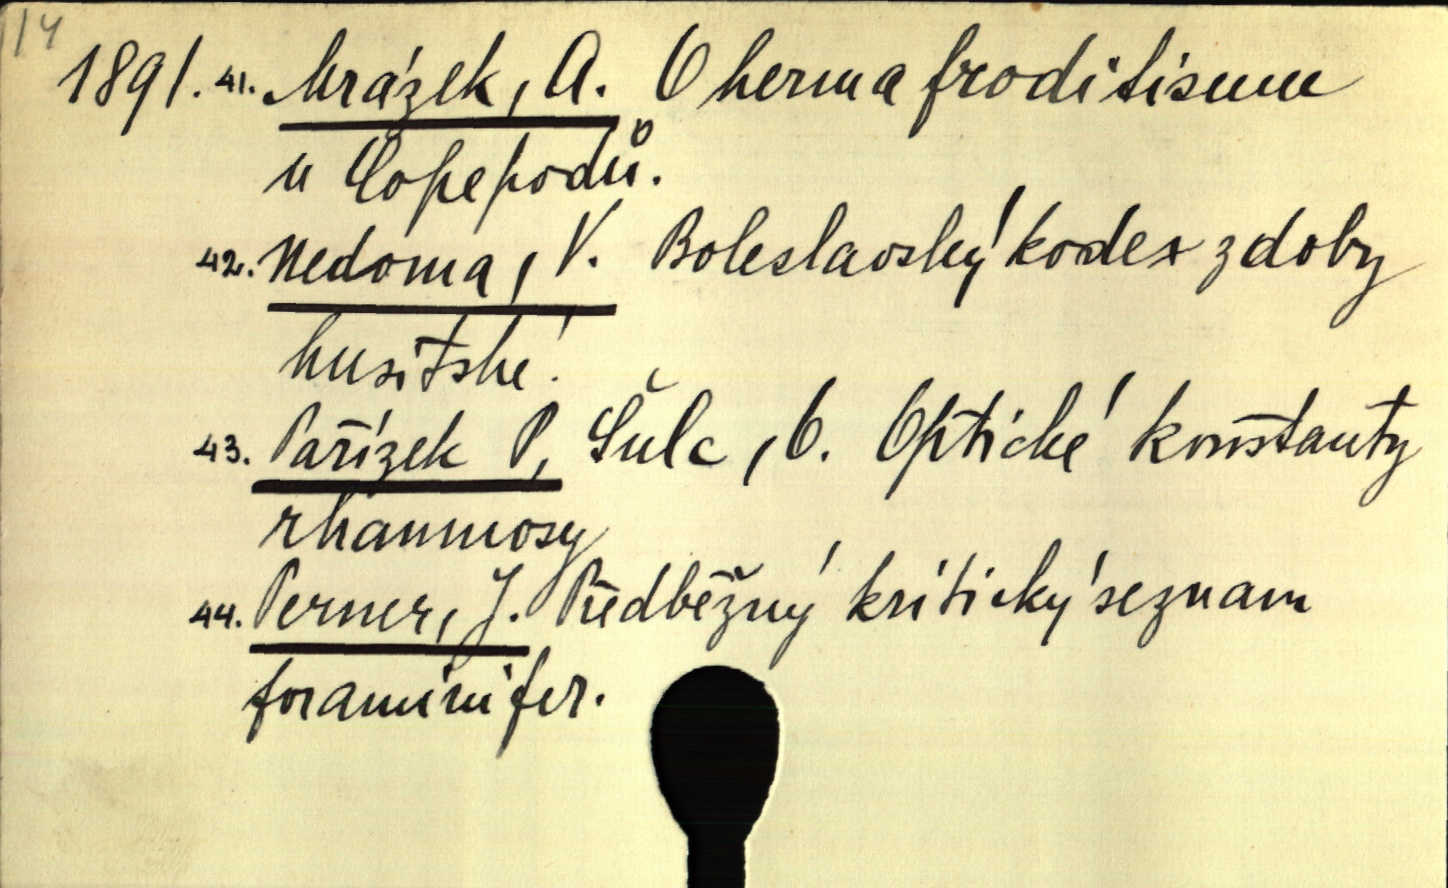 14
1891. 41. Mrázek, A. O hermafroditismu
u Copepodů.
42. Nedoma, V. Boleslavský kodex z doby
husitské.
43. Pařízek P, Šulc, O. Optické konstanty
rhamnosy
44. Perner, J. Předběžný kritický seznam
foraminifer.